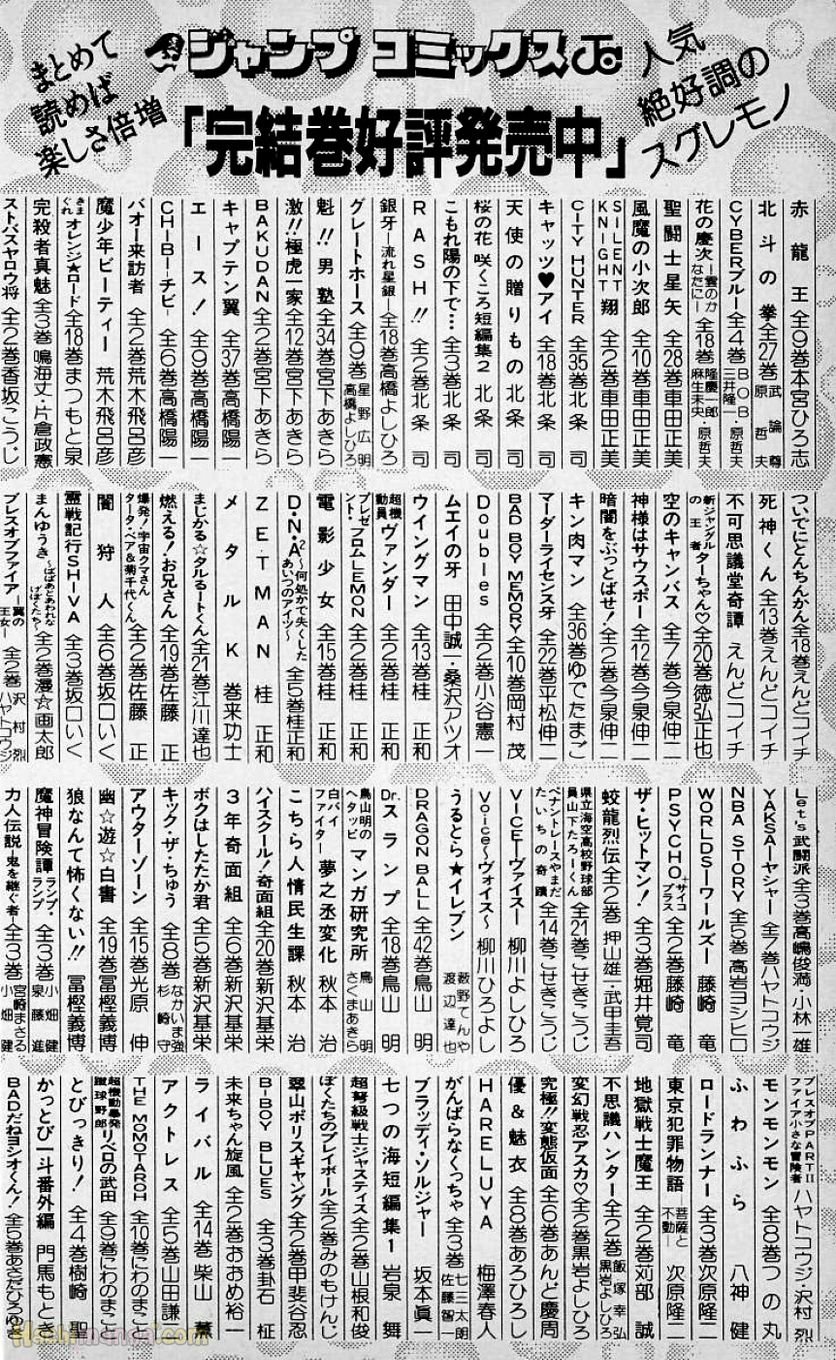 まとめて
読めば
楽しさ倍増
ジャンプ コミックス
人気
絶好調の
スグレモノ
「完結巻好評発売中」
赤龍王 全9巻 本宮ひろ志
北斗の拳 全27巻 武論尊 原哲夫
CYBERブルー 全4巻 BOB・三井隆一・原哲夫
花の慶次―雲のかなたに― 全18巻 隆慶一郎・麻生未央・原哲夫
聖闘士星矢 全28巻 車田正美
風魔の小次郎 全10巻 車田正美
SILENT KNIGHT 翔 全2巻 車田正美
CITY HUNTER 全35巻 北条司
キャッツ♥アイ 全18巻 北条司
天使の贈りもの 北条司
桜の花 咲くころ 短編集2 北条司
こもれ陽の下で… 全3巻 北条司
RASH!! 全2巻 北条司
銀牙―流れ星銀― 全18巻 高橋よしひろ
グレートホース 全9巻 星野広明 高橋よしひろ
魁!!男塾 全34巻 宮下あきら
激!!極虎一家 全12巻 宮下あきら
BAKUDAN 全2巻 宮下あきら
キャプテン翼 全37巻 高橋陽一
エース! 全9巻 高橋陽一
CHIBI―チビ― 全6巻 高橋陽一
バオー来訪者 全2巻 荒木飛呂彦
魔少年ビーティー 荒木飛呂彦
きまぐれオレンジ★ロード 全18巻 まつもと泉
完殺者真魅 全3巻 鳴海丈・片倉政憲
ストバスヤロウ将 全2巻 香坂こうじ
ついでにとんちんかん 全18巻 えんどコイチ
死神くん 全13巻 えんどコイチ
不可思議堂奇譚 えんどコイチ
新ジャングルの王者ターちゃん♡ 全20巻 徳弘正也
空のキャンバス 全7巻 今泉伸二
神様はサウスポー 全12巻 今泉伸二
暗闇をぶっとばせ! 全2巻 今泉伸二
キン肉マン 全36巻 ゆでたまご
マーダーライセンス牙 全22巻 平松伸二
BAD BOY MEMORY 全10巻 岡村茂
Doubles 全2巻 小谷憲一
ムエイの牙 田中誠一・桑沢アツオ
ウイングマン 全13巻 桂正和
超機動員ヴァンダー 全2巻 桂正和
プレゼント・フロムLEMON 全2巻 桂正和
電影少女 全15巻 桂正和
D・N・A²～何処かで失くしたあいつのアイツ～ 全5巻 桂正和
ZETMAN 桂正和
メタルK 巻来功士
まじかる☆タルるートくん 全21巻 江川達也
燃える!お兄さん 全19巻 佐藤正
爆発!宇宙クマさん タータ・ベア&菊千代くん 全2巻 佐藤正
闇狩人 全6巻 坂口いく
霊戦記行SHIVA 全3巻 坂口いく
まんゆうき～ばばあとあわれなげぼくたち～ 全2巻 漫☆画太郎
ブレスオブファイア―翼の王女― 全2巻 沢村烈 ハヤトコウジ
Let's 武闘派 全3巻 高嶋俊満・小林一雄
YAKSA―ヤシャ― 全7巻 ハヤトコウジ
NBA STORY 全5巻 高岩ヨシヒロ
WORLDS―ワールズ― 藤崎竜
PSYCHO+サイコプラス 全2巻 藤崎竜
ザ・ヒットマン! 全3巻 堀井覚司
蛟龍烈伝 全2巻 押山雄一・武甲圭吾
県立海空高校野球部員山下たろーくん 全21巻 こせきこうじ
ペナントレースやまだたいちの奇蹟 全14巻 こせきこうじ
VICE―ヴァイス― 柳川よしひろ
Voice～ヴォイス～ 柳川ひろよし
うるとら★イレブン 藪野てんや 渡辺達也
DRAGON BALL 全42巻 鳥山明
Dr.スランプ 全18巻 鳥山明
鳥山明のヘタッピマンガ研究所 鳥山明 さくまあきら
白バイファイター 夢之丞変化 秋本治
こちら人情民生課 秋本治
ハイスクール!奇面組 全20巻 新沢基栄
3年奇面組 全6巻 新沢基栄
ボクはしたたか君 全5巻 新沢基栄
キック・ザ・ちゅう 全8巻 なかいま強 杉崎守
アウターゾーン 全15巻 光原伸
幽☆遊☆白書 全19巻 冨樫義博
狼なんて怖くない!! 冨樫義博
魔神冒険譚ランプ・ランプ 全3巻 泉藤進 小畑健
力人伝説―鬼を継ぐ者― 全3巻 宮崎まさる 小畑健
ブレスオブファイア PARTII 小さな冒険者 ハヤトコウジ・沢村烈
モンモンモン 全8巻 つの丸
ふわふら 八神健
ロードランナー 全3巻 次原隆二
東京犯罪物語 菩薩と不動 次原隆二
地獄戦士魔王 全2巻 苅部誠
不思議ハンター 全2巻 飯塚幸弘 黒岩よしひろ
変幻戦忍アスカ♡ 全2巻 黒岩よしひろ
究極!!変態仮面 全6巻 あんど慶周
優&魅衣 全8巻 あろひろし
HARELUYA 梅澤春人
がんばらなくっちゃ 全3巻 七三太朗 佐藤智一
ブラッディ・ソルジャー 坂本眞一
七つの海 短編集1 岩泉舞
超弩級戦士ジャスティス 全2巻 山根和俊
ぼくたちのプレイボール 全2巻 みのもけんじ
翠山ポリスギャング 全2巻 甲斐谷忍
B-BOY BLUES 全3巻 卦石柾
未来ちゃん旋風 全2巻 おおめ裕一
ライバル 全14巻 柴山薫
アクトレス 全5巻 山田謙一
THE MOMOTAROH 全10巻 にわのまこと
超機動暴発蹴球野郎リベロの武田 全9巻 にわのまこと
とびっきり! 全4巻 樹崎聖
かっとび一斗番外編 門馬もとき
BADだねヨシオくん! 全5巻 あさだひろゆき